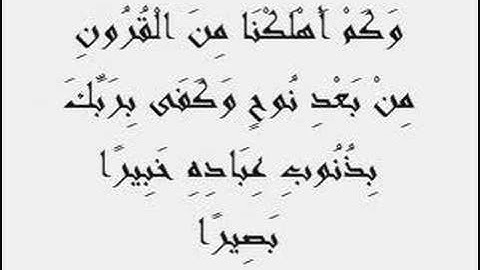 وَكَمْ أَهْلَكْنَا مِنَ الْقُرُونِ
مِنْ بَعْدِ نُوحٍ وَكَفَى بِرَبِّكَ
بِذُنُوبِ عِبَادِهِ خَبِيرًا
بَصِيرًا